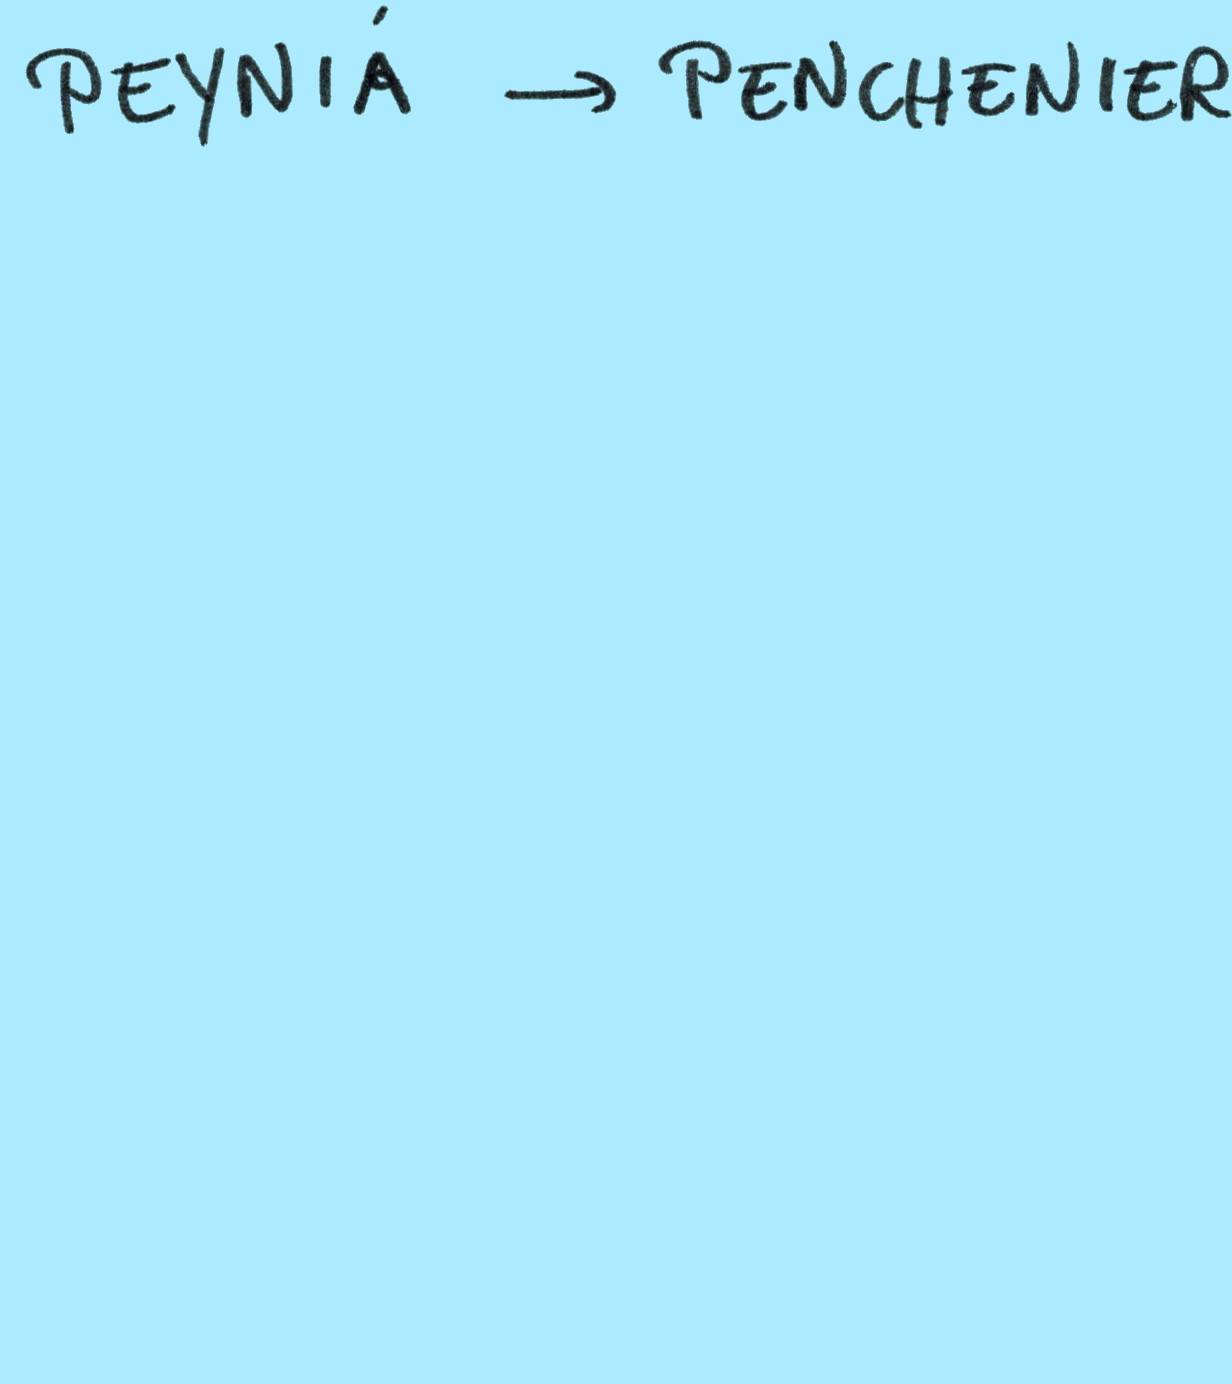 PEYNIÁ → PENCHENIER